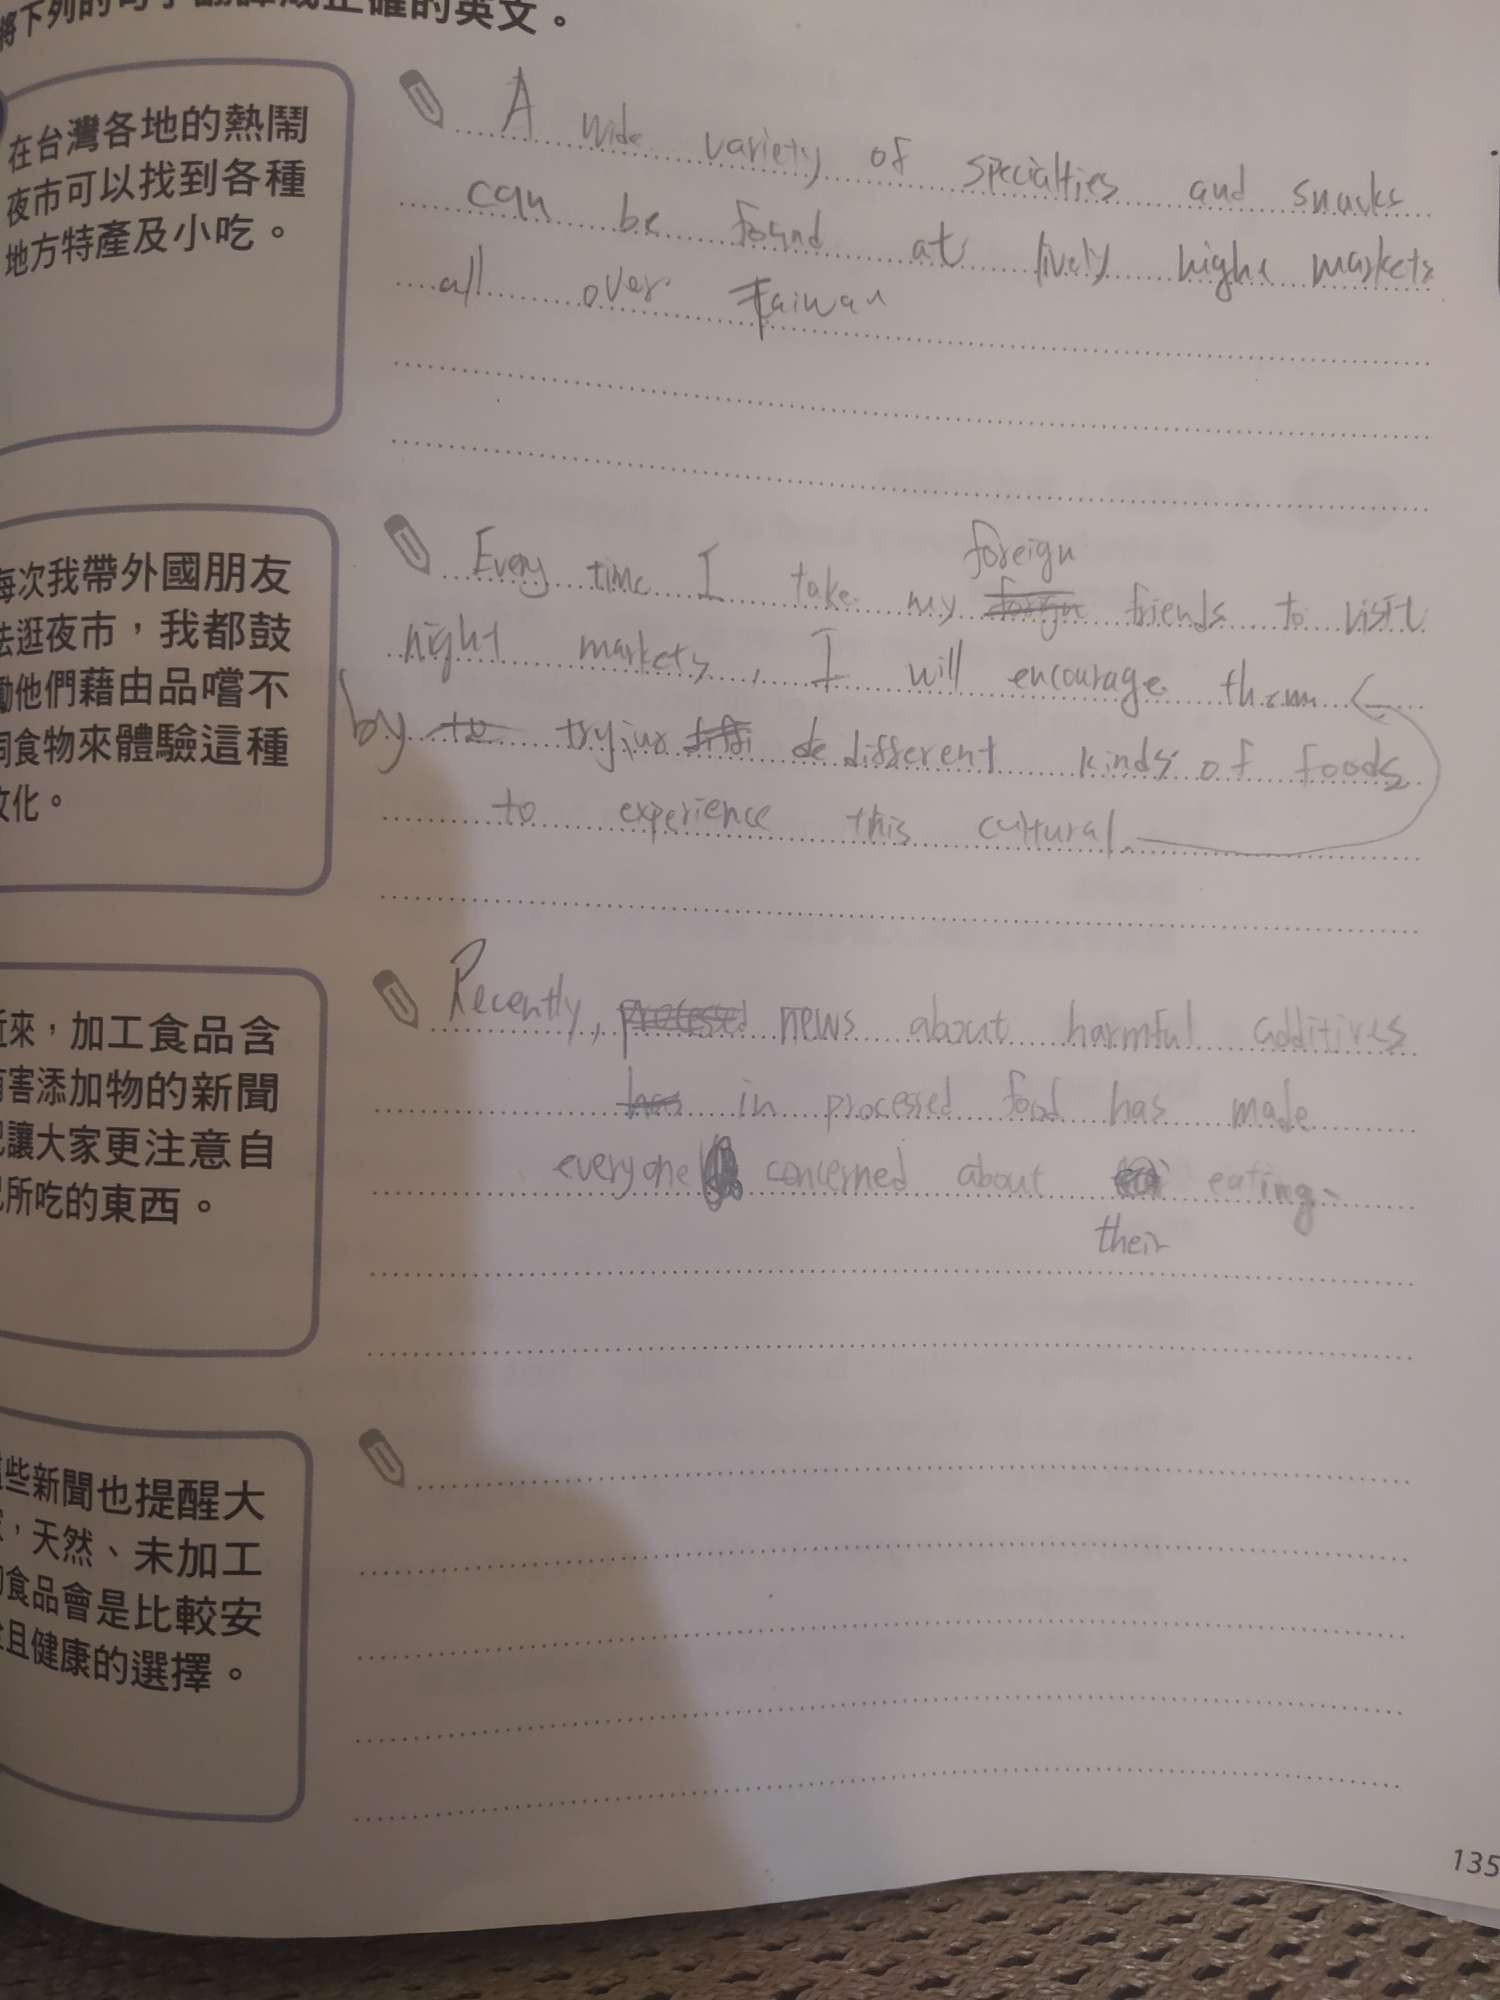 將下列的句子翻譯成正確的英文。
在台灣各地的熱鬧
夜市可以找到各種
地方特產及小吃。
A wide variety of specialties and snacks
can be found at lively night markets
all over Taiwan
每次我帶外國朋友
去逛夜市，我都鼓
勵他們藉由品嚐不
同食物來體驗這種
文化。
foreign
Every time I take my forign friends to visit
night markets, I will encourage them
by to trying diffi de different kinds of foods
to experience this cultural.
近來，加工食品含
有害添加物的新聞
已讓大家更注意自
己所吃的東西。
Recently, processed news about harmful additives
has in processed food has made
everyone concerned about eating.
their
這些新聞也提醒大
家，天然、未加工
的食品會是比較安
全且健康的選擇。
135